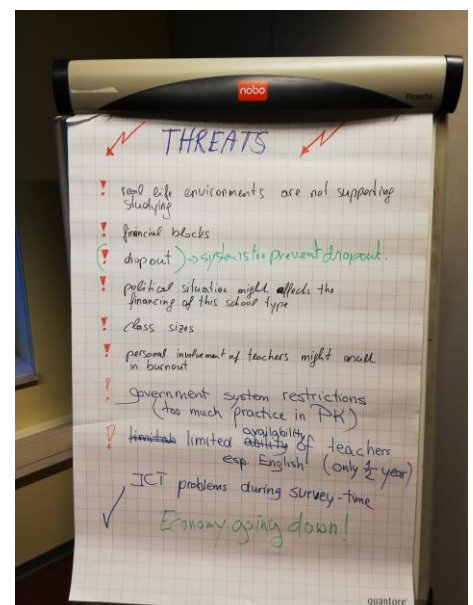 nobo
Piranha
THREATS
! real life environments are not supporting
studying
! financial blocks
(! dropout) → system is to prevent dropout.
! political situation might affects the
financing of this school type
! class sizes
! personal involvement of teachers might result
in burnout
! government system restrictions
(too much practice in PK)
! limited availability of teachers
esp. English (only ½ year)
ICT problems during survey-time
Economy going down!
quantore